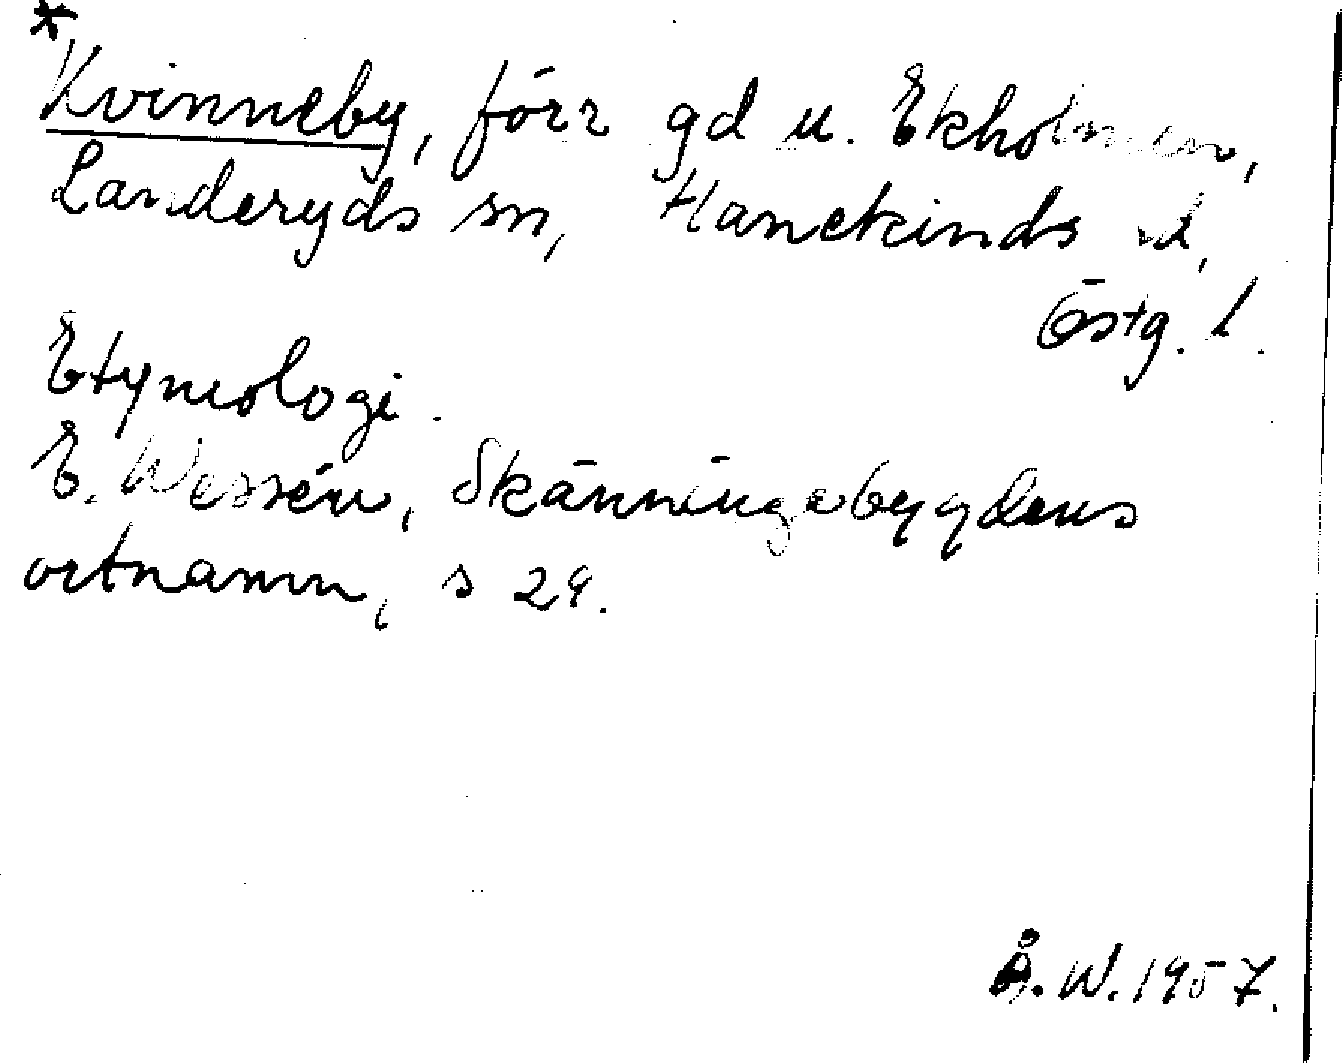 *
Kvinneby, förr gd u. Ekholmen,
Landeryds sn, Hanekinds hd,
Östg. l.
Etymologi.
E. Wessén, Skänningebygdens
ortnamn, s 29.
Å. W. 1957.